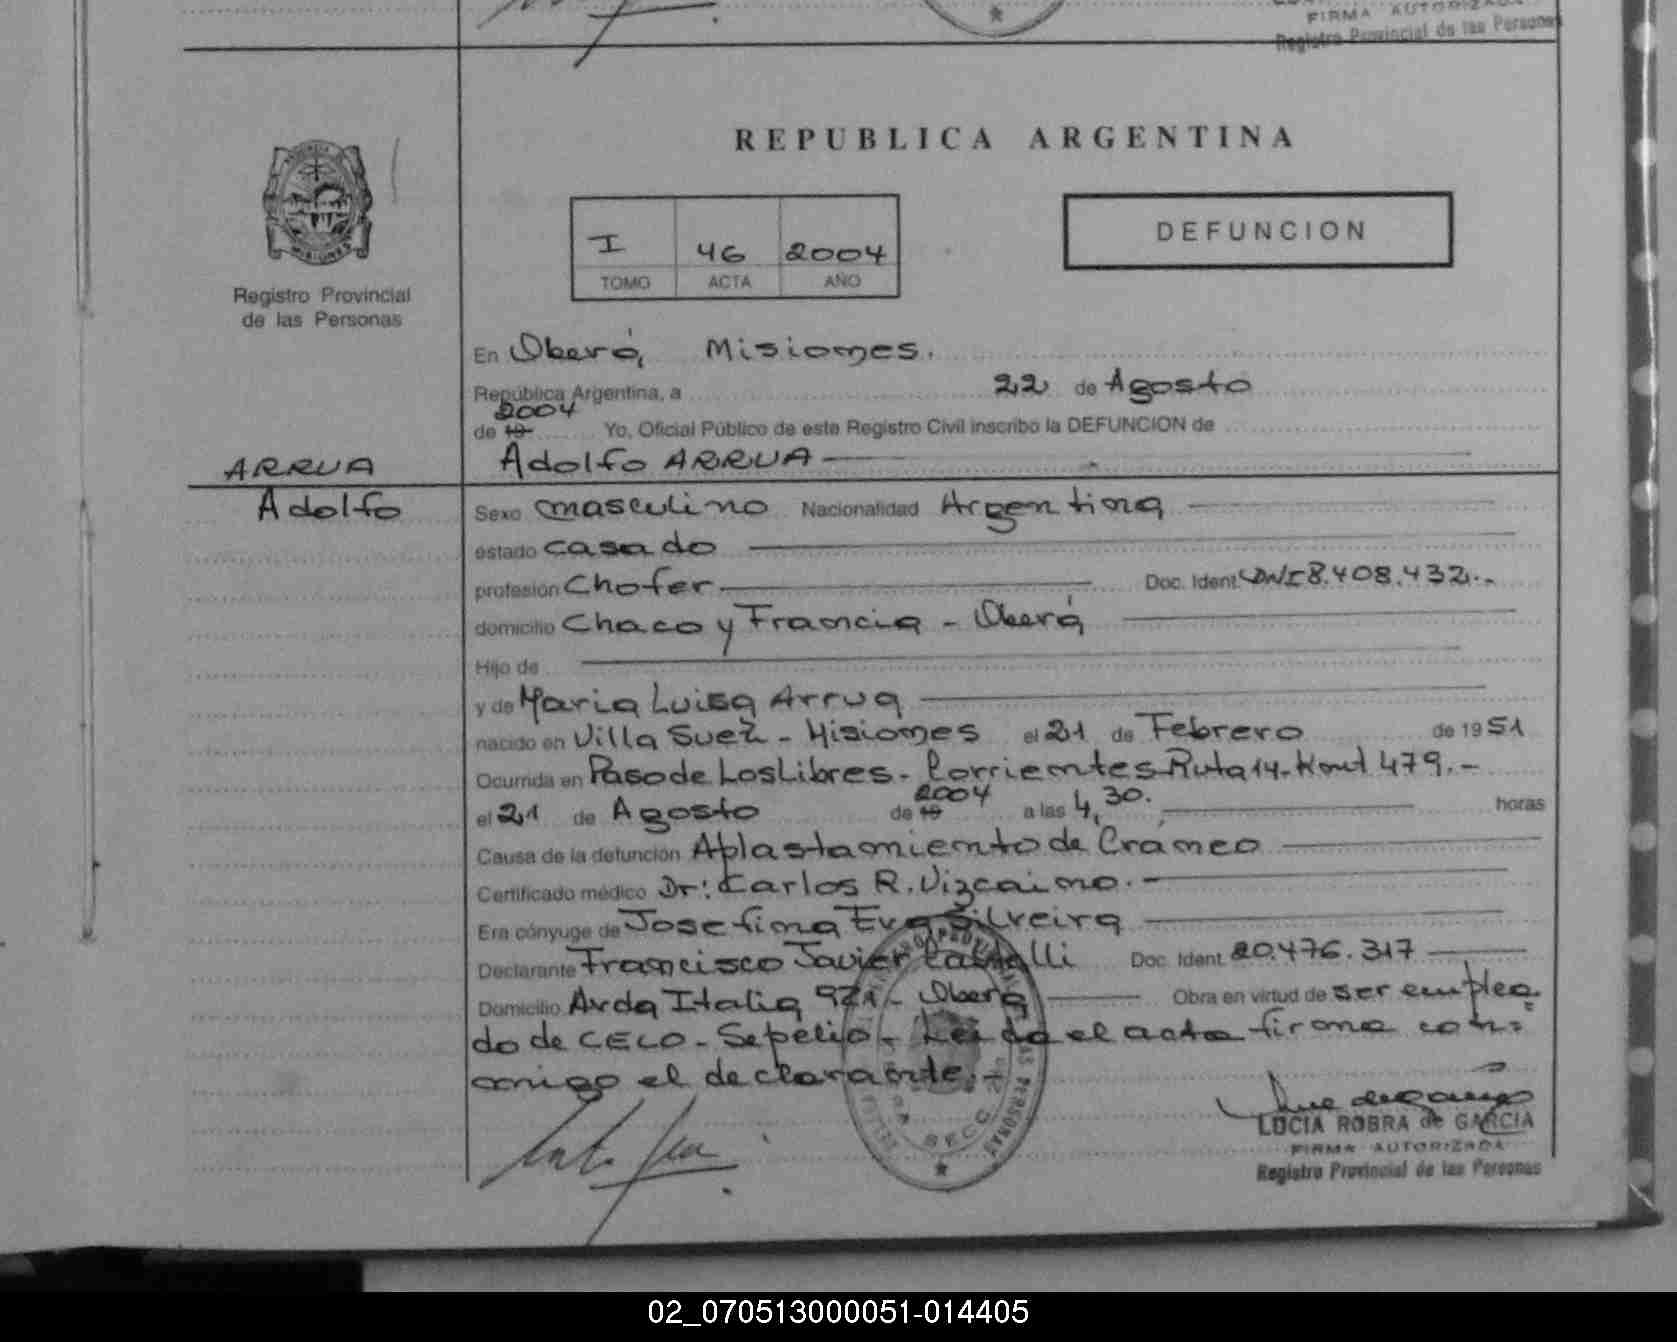 FIRMA AUTORIZADA
Registro Provincial de las Personas
REPUBLICA ARGENTINA
I 46 2004
TOMO ACTA AÑO
DEFUNCION
MISIONES
Registro Provincial
de las Personas
En Oberá, Misiones.
República Argentina, a 22 de Agosto
2004
de 19 Yo, Oficial Público de este Registro Civil inscribo la DEFUNCION de
ARRUA Adolfo ARRUA
Adolfo Sexo masculino Nacionalidad Argentina
estado casado
profesión Chofer Doc. Ident. DNI 8.408.432.-
domicilio Chaco y Francia - Oberá
Hijo de
y de Maria Luisa Arrua
nacido en Villa Suez - Misiones el 21 de Febrero de 1951
Ocurrida en Paso de Los Libres - Corrientes - Ruta 14 - Kmt 479.-
2004
el 21 de Agosto de 19 a las 4,30. horas
Causa de la defunción Aplastamiento de Craneo
Certificado médico Dr: Carlos R. Vizcaino.-
Era cónyuge de Josefina Eva Silveira
Declarante Francisco Javier Doc. Ident. 20.476.317
Domicilio Avda Italia 921 - Oberá Obra en virtud de ser emplea
do de CELO - Sepelio - Leida el acta firma con=
migo el declarante.-
LUCIA ROBRA de GARCIA
FIRMA AUTORIZADA
Registro Provincial de las Personas
02_070513000051-014405